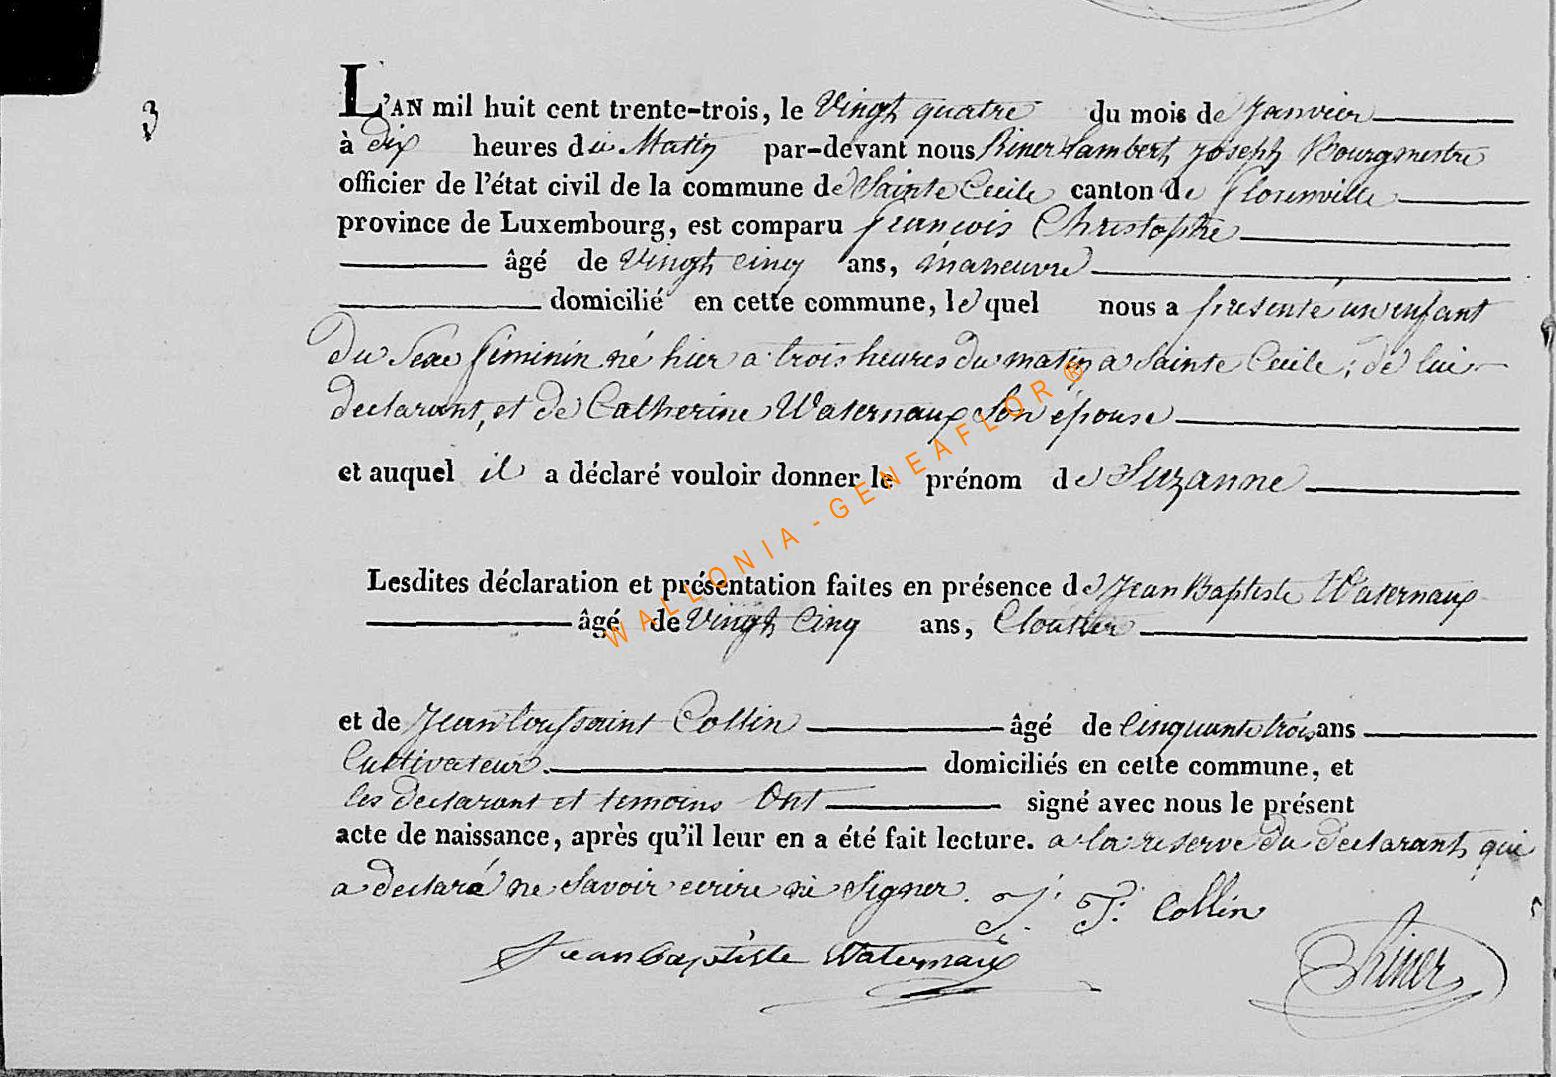 3
L'AN mil huit cent trente-trois, le Vingt quatre du mois de Janvier
à dix heures du Matin par-devant nous Riner Lambert Joseph Bourgmestre
officier de l'état civil de la commune de Sainte Cecile canton de Florenville
province de Luxembourg, est comparu François Christophe
âgé de Vingt cinq ans, manœuvre
domicilié en cette commune, lequel nous a presenté un enfant
du Sexe feminin né hier a trois heures du matin a Sainte Cecile, de lui
declarant, et de Catherine Waternaux Son épouse
et auquel il a déclaré vouloir donner le prénom de Suzanne
Lesdites déclaration et présentation faites en présence de Jean Baptiste Waternaux
âgé de Vingt Cinq ans, Cloutier
et de Jean Toussaint Collin âgé de Cinquante trois ans
Cultivateur domiciliés en cette commune, et
les declarant et temoins Ont signé avec nous le présent
acte de naissance, après qu'il leur en a été fait lecture. a la reserve du declarant qui
a declaré ne Savoir ecrire ni Signer. J. T. Collin
Jean baptiste Waternaux Riner
WALLONIA-GENEAFLOR®